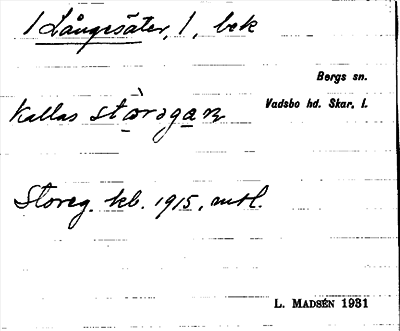 1 Långesäter, 1, bek
Bergs sn.
Vadsbo hd. Skar. l.
Kallas
Storeg. kb. 1915, mtl.
L. MADSÉN 1931